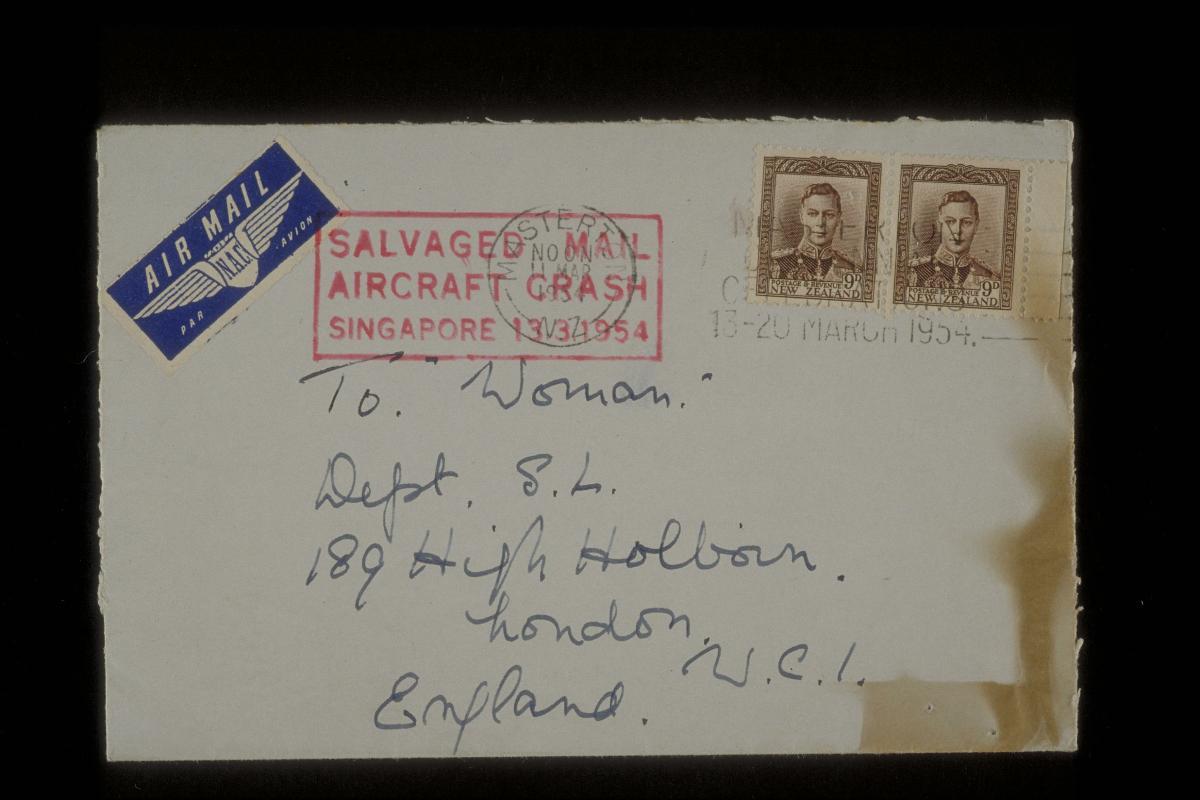 AIR MAIL
NAC
PAR AVION
SALVAGED MAIL
AIRCRAFT CRASH
SINGAPORE 13.3.1954
MASTERTON
NOON
11 MAR
1954
N.Z.
POSTAGE & REVENUE
9D
NEW ZEALAND
POSTAGE & REVENUE
9D
NEW ZEALAND
13-20 MARCH 1954.
To. "Woman."
Dept. S.L.
189 High Holborn.
London.
W.C.1.
England.